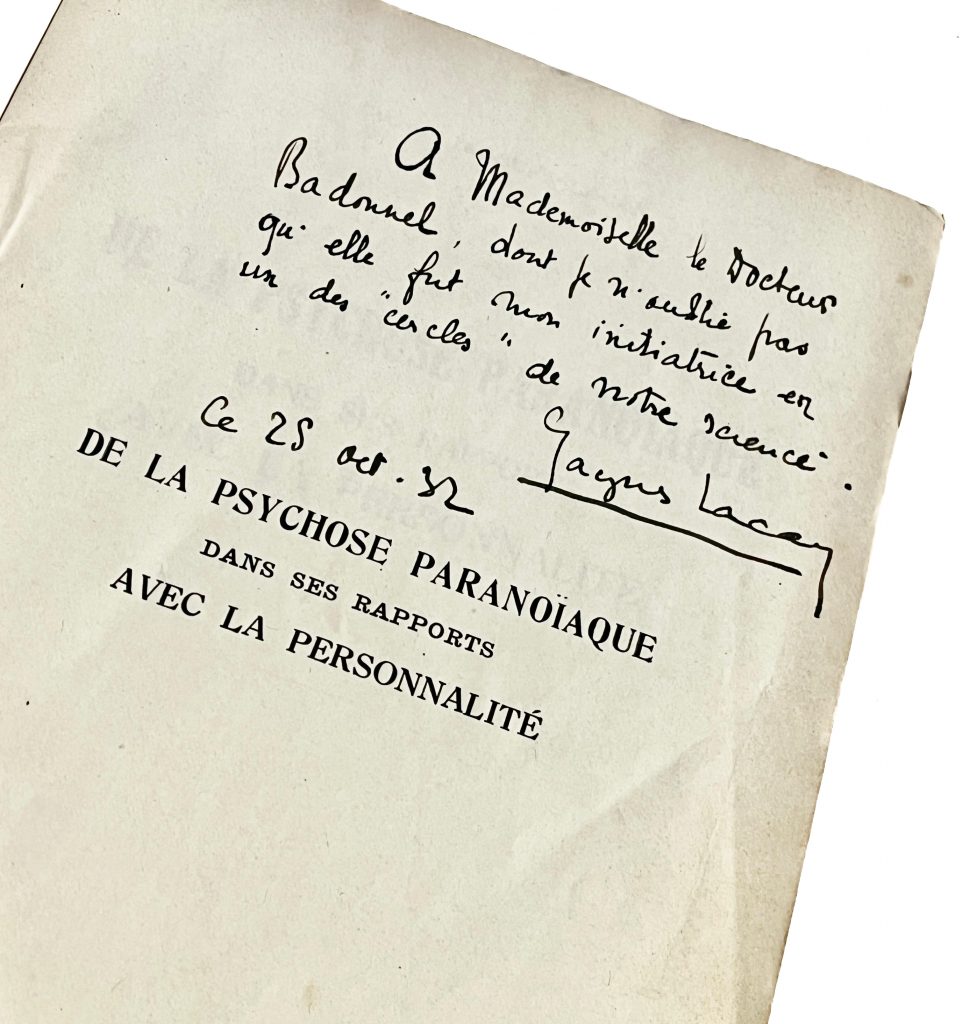 A Mademoiselle le Docteur
Badonnel, dont je n'oublie pas
qu'elle fut mon initiatrice en
un des "cercles" de notre science.
Jacques Lacan
Ce 25 oct. 32
DE LA PSYCHOSE PARANOÏAQUE
DANS SES RAPPORTS
AVEC LA PERSONNALITÉ